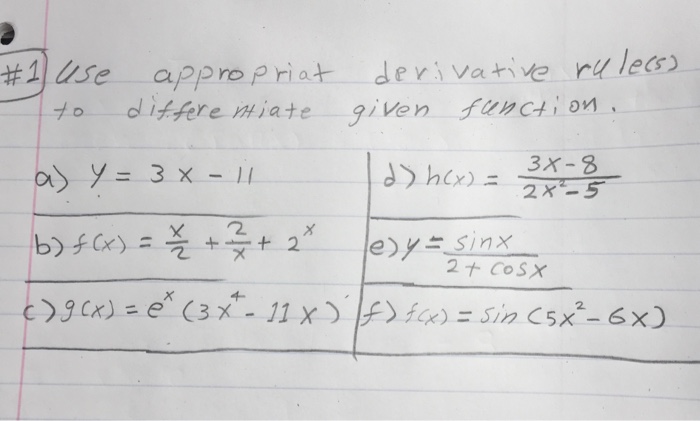 #1 Use appropriat derivative rule(s)
to differentiate given function.
a) y = 3x - 11
b) f(x) = x/2 + 2/x + 2^x
c) g(x) = e^x (3x^4 - 11x)
d) h(x) = (3x-8)/(2x^2-5)
e) y = sinx/(2 + cosx)
f) f(x) = sin(5x^2 - 6x)